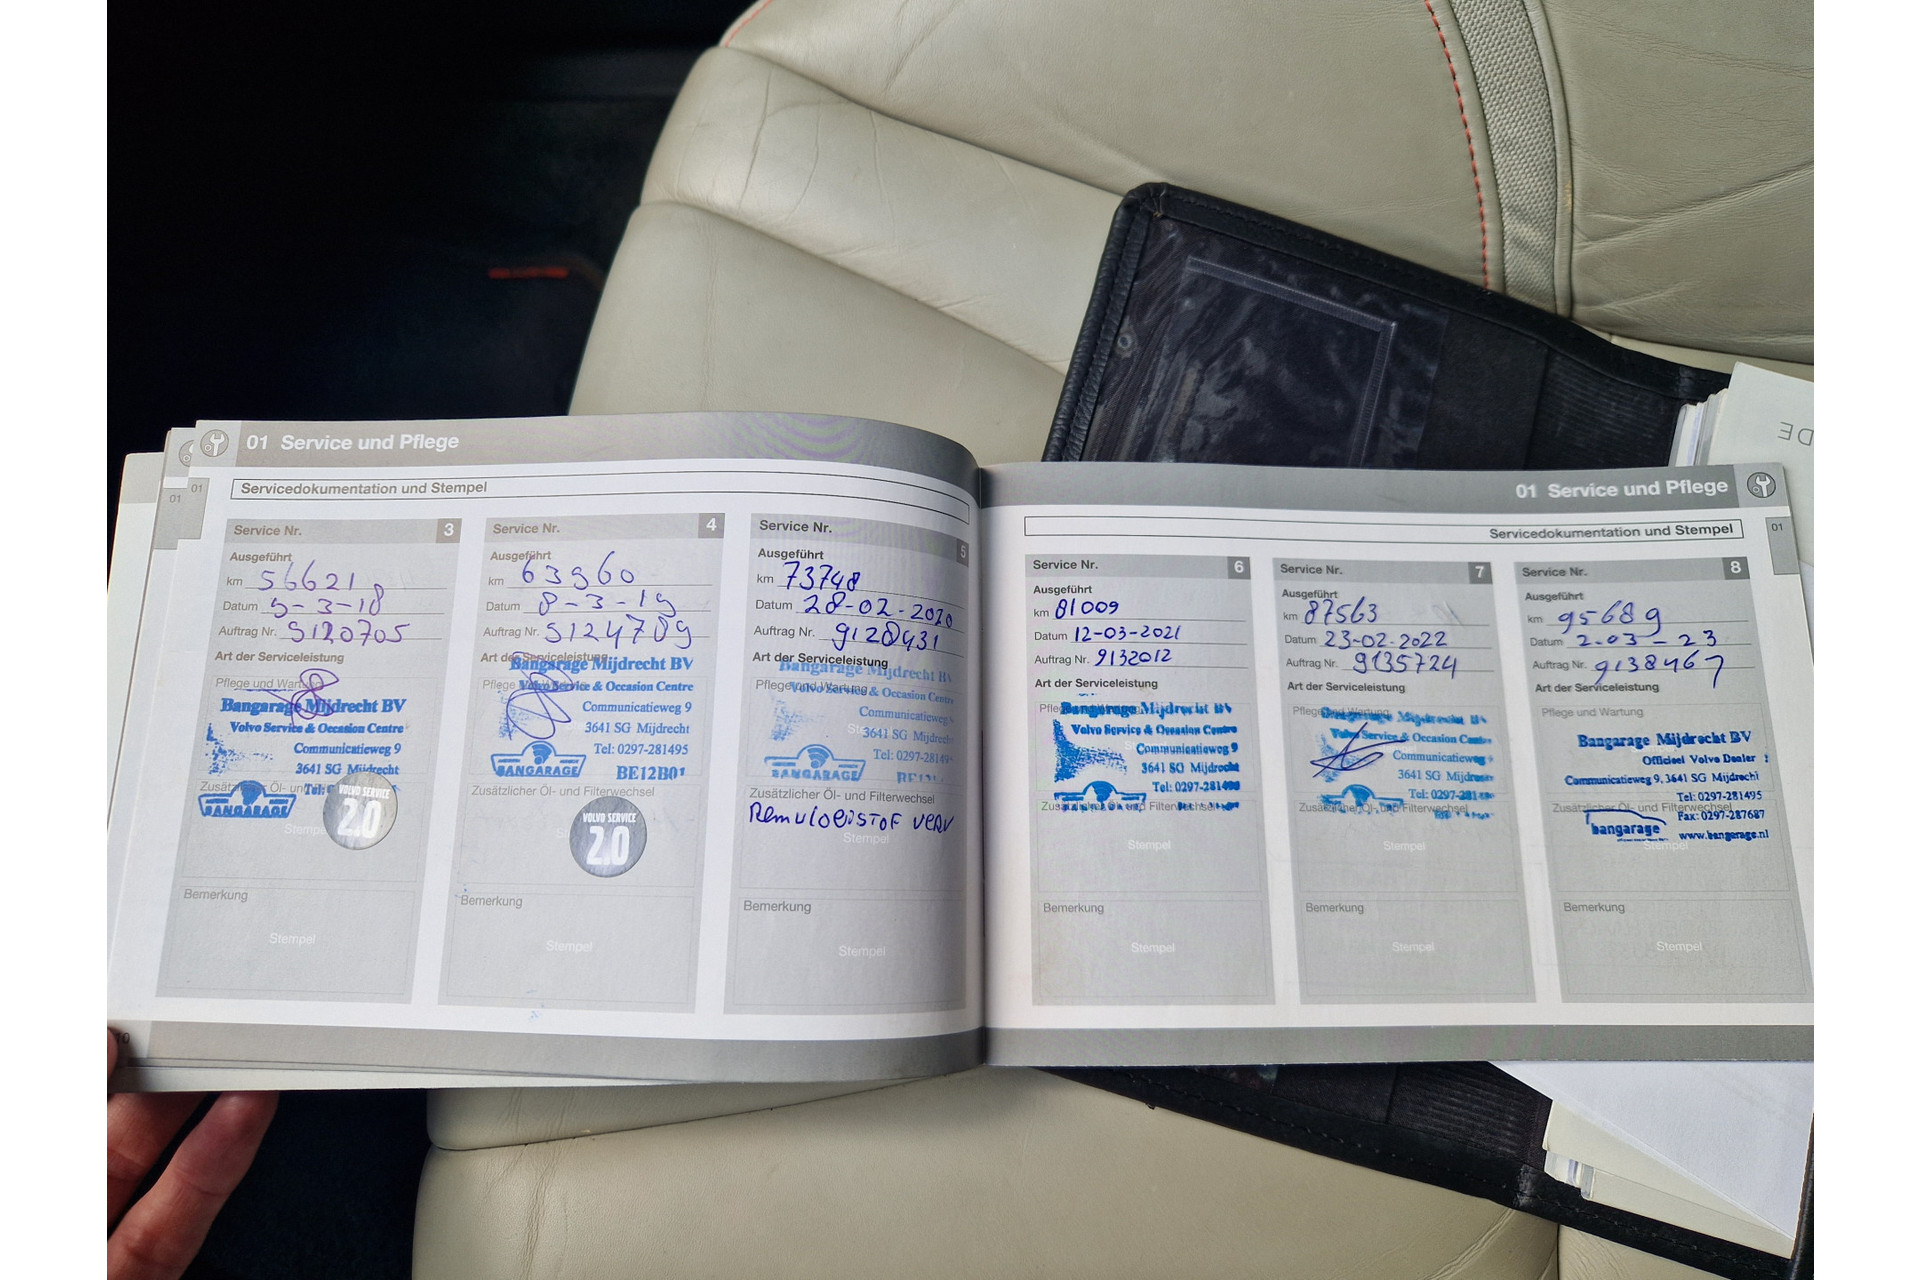 01 Service und Pflege
Servicedokumentation und Stempel
01
01
Service Nr. 3
Ausgeführt
km 56621
Datum 9-3-18
Auftrag Nr. 9120705
Art der Serviceleistung
Pflege und Wartung
Bangarage Mijdrecht BV
Volvo Service & Occasion Centre
Communicatieweg 9
3641 SG Mijdrecht
Zusätzlicher Öl-
Tel:
BANGARAGE
VOLVO SERVICE
2.0
Stempel
Bemerkung
Stempel
Service Nr. 4
Ausgeführt
km 63960
Datum 8-3-19
Auftrag Nr. 9124789
Art der Serviceleistung
Bangarage Mijdrecht BV
Pflege
Volvo Service & Occasion Centre
Communicatieweg 9
3641 SG Mijdrecht
Tel: 0297-281495
BANGARAGE BE12B01
Zusätzlicher Öl- und Filterwechsel
VOLVO SERVICE
2.0
Bemerkung
Stempel
Service Nr. 5
Ausgeführt
km 73748
Datum 28-02-2020
Auftrag Nr. 9128431
Art der Serviceleistung
Bangarage Mijdrecht BV
Pflege und Wartung
Volvo Service & Occasion Centre
Communicatieweg 9
3641 SG Mijdrecht
Tel: 0297-28149
BANGARAGE
Zusätzlicher Öl- und Filterwechsel
Remvloeistof verv
Stempel
Bemerkung
Stempel
10
01 Service und Pflege
Servicedokumentation und Stempel
01
Service Nr. 6
Ausgeführt
km 81009
Datum 12-03-2021
Auftrag Nr. 9132012
Art der Serviceleistung
Bangarage Mijdrecht BV
Volvo Service & Occasion Centre
Communicatieweg 9
3641 SG Mijdrecht
Tel: 0297-281400
Stempel
Bemerkung
Stempel
Service Nr. 7
Ausgeführt
km 87563
Datum 23-02-2022
Auftrag Nr. 9135724
Art der Serviceleistung
Pflege und Wartung
Bangarage Mijdrecht BV
Volvo Service & Occasion Centre
Communicatieweg 9
3641 SG Mijdrecht
Tel: 0297-281
Zusätzlicher Öl- und Filterwechsel
Stempel
Bemerkung
Stempel
Service Nr. 8
Ausgeführt
km 95689
Datum 2-03-23
Auftrag Nr. 9138467
Art der Serviceleistung
Pflege und Wartung
Bangarage Mijdrecht BV
Officieel Volvo Dealer
Communicatieweg 9, 3641 SG Mijdrecht
Tel: 0297-281495
Zusätzlicher Öl- und Filterwechsel
Fax: 0297-287687
bangarage www.bangarage.nl
Stempel
Bemerkung
Stempel
DE